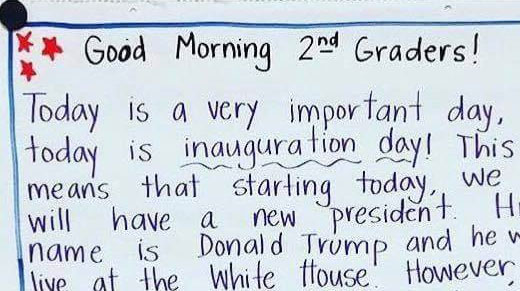 Good Morning 2nd Graders!
Today is a very important day,
today is inauguration day! This
means that starting today, we
will have a new president. Hi
name is Donald Trump and he w
live at the White House. However,